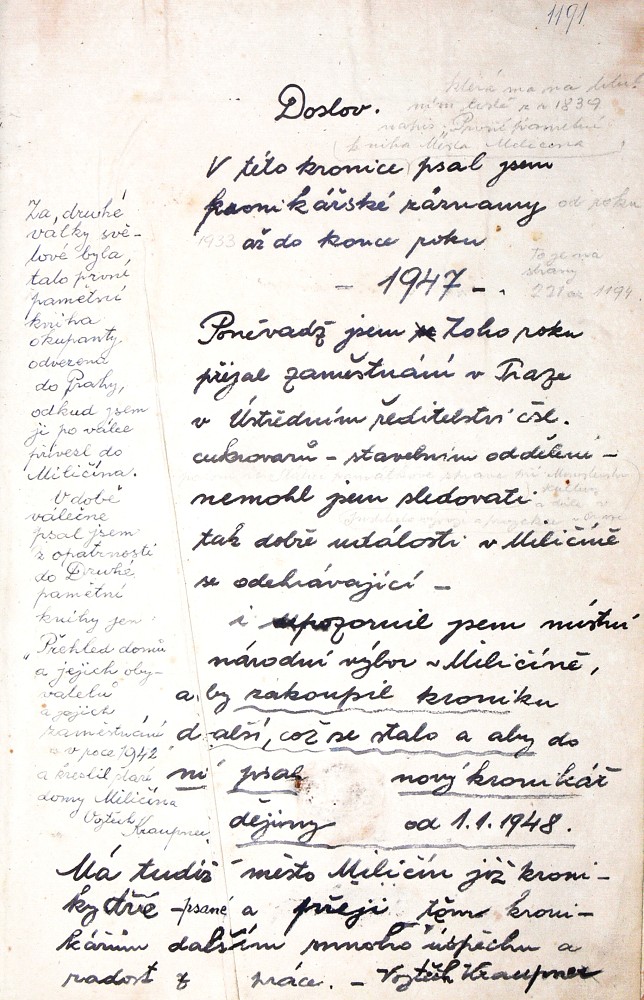 1191
Doslov.
která má na titul-
ním listě z r. 1839
nápis "První pamětní
kniha Města Miličína
V této kronice psal jsem
kronikářské záznamy od roku
1933 až do konce roku
- 1947 -.
to je na
strany
231 až 1194
Poněvadž jsem toho roku
přijal zaměstnání v Praze
v Ústředním ředitelství čsl.
cukrovarů - stavebním oddělení -
nemohl jsem sledovati
tak dobře události v Miličíně
se odehrávající -
i upozornil jsem místní
národní výbor v Miličíně,
aby zakoupil kroniku
další, což se stalo a aby do
ní psal nový kronikář
dějiny od 1.1.1948.
Má tudíž město Miličín již kroni-
ky tři - psané a přeji těm kroni-
kářům dalším mnoho úspěchu a
radost z práce. - Vojtěch Kraupner
Za druhé
války svě-
tové byla
tato první
pamětní
kniha
okupanty
odvezena
do Prahy,
odkud jsem
ji po válce
přivezl do
Miličína.
V době
válečné
psal jsem
z opatrnosti
do Druhé
pamětní
knihy jen:
"Přehled domů
a jejich oby-
vatelů
a jejich
zaměstnání
v roce 1942
a kreslil staré
domy Miličína
Vojtěch
Kraupner